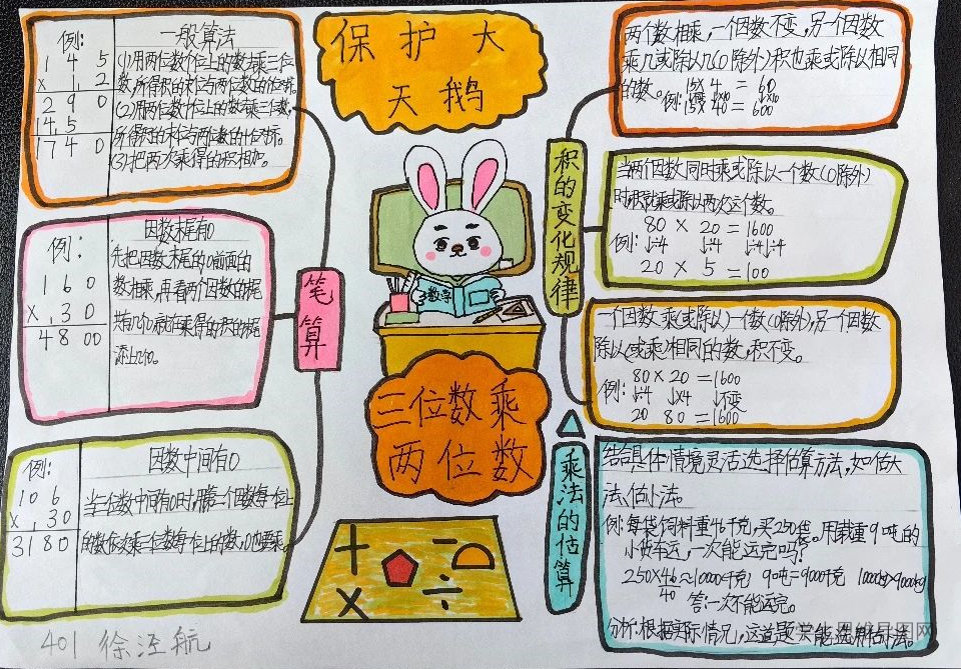 保护大
天鹅
三位数乘
两位数
笔算
例:
1 4 5
× 1 2
2 9 0
1 4 5
1 7 4 0
一般算法
(1)用两位数个位上的数乘三位
数,所得积的末位与两位数的个位对齐。
(2)用两位数十位上的数乘三位数,
所得积的末位与两位数的十位对齐。
(3)把两次乘得的积相加。
例:
1 6 0
× 3 0
4 8 0 0
因数末尾有0
先把因数末尾的0前面的
数相乘,再看两个因数的末尾
共有几个0就在乘得的积的末尾
添上几个0。
例:
1 0 6
× 3 0
3 1 8 0
因数中间有0
当三位数中间有0时,用第二个因数每一位上
的数依次乘三位数每一位上的数,0也要乘。
积的变化规律
两个数相乘,一个因数不变,另一个因数
乘几或除以几(0除外)积也乘或除以相同
的数。
15×4=60
例: ↓×10 ↓×10
15×40=600
当两个因数同时乘或除以一个数(0除外)
时积就乘或除以两次这个数。
80×20=1600
例: ↓÷4 ↓÷4 ↓÷4÷4
20×5=100
一个因数乘(或除以)一个数(0除外),另一个因数
除以(或乘)相同的数,积不变。
80×20=1600
例: ↓÷4 ↓×4 ↓不变
20 80=1600
乘法的估算
结合具体情境灵活选择估算方法,如估大
法、估小法。
例:每袋饲料重46千克,买250袋。用载重9吨的
小货车运,一次能运完吗?
250×46≈10000(千克) 9吨=9000千克 10000kg>9000kg
40 答:一次不能运完。
分析:根据实际情况,这道题只能选用估小法。
数学
401 徐泾航